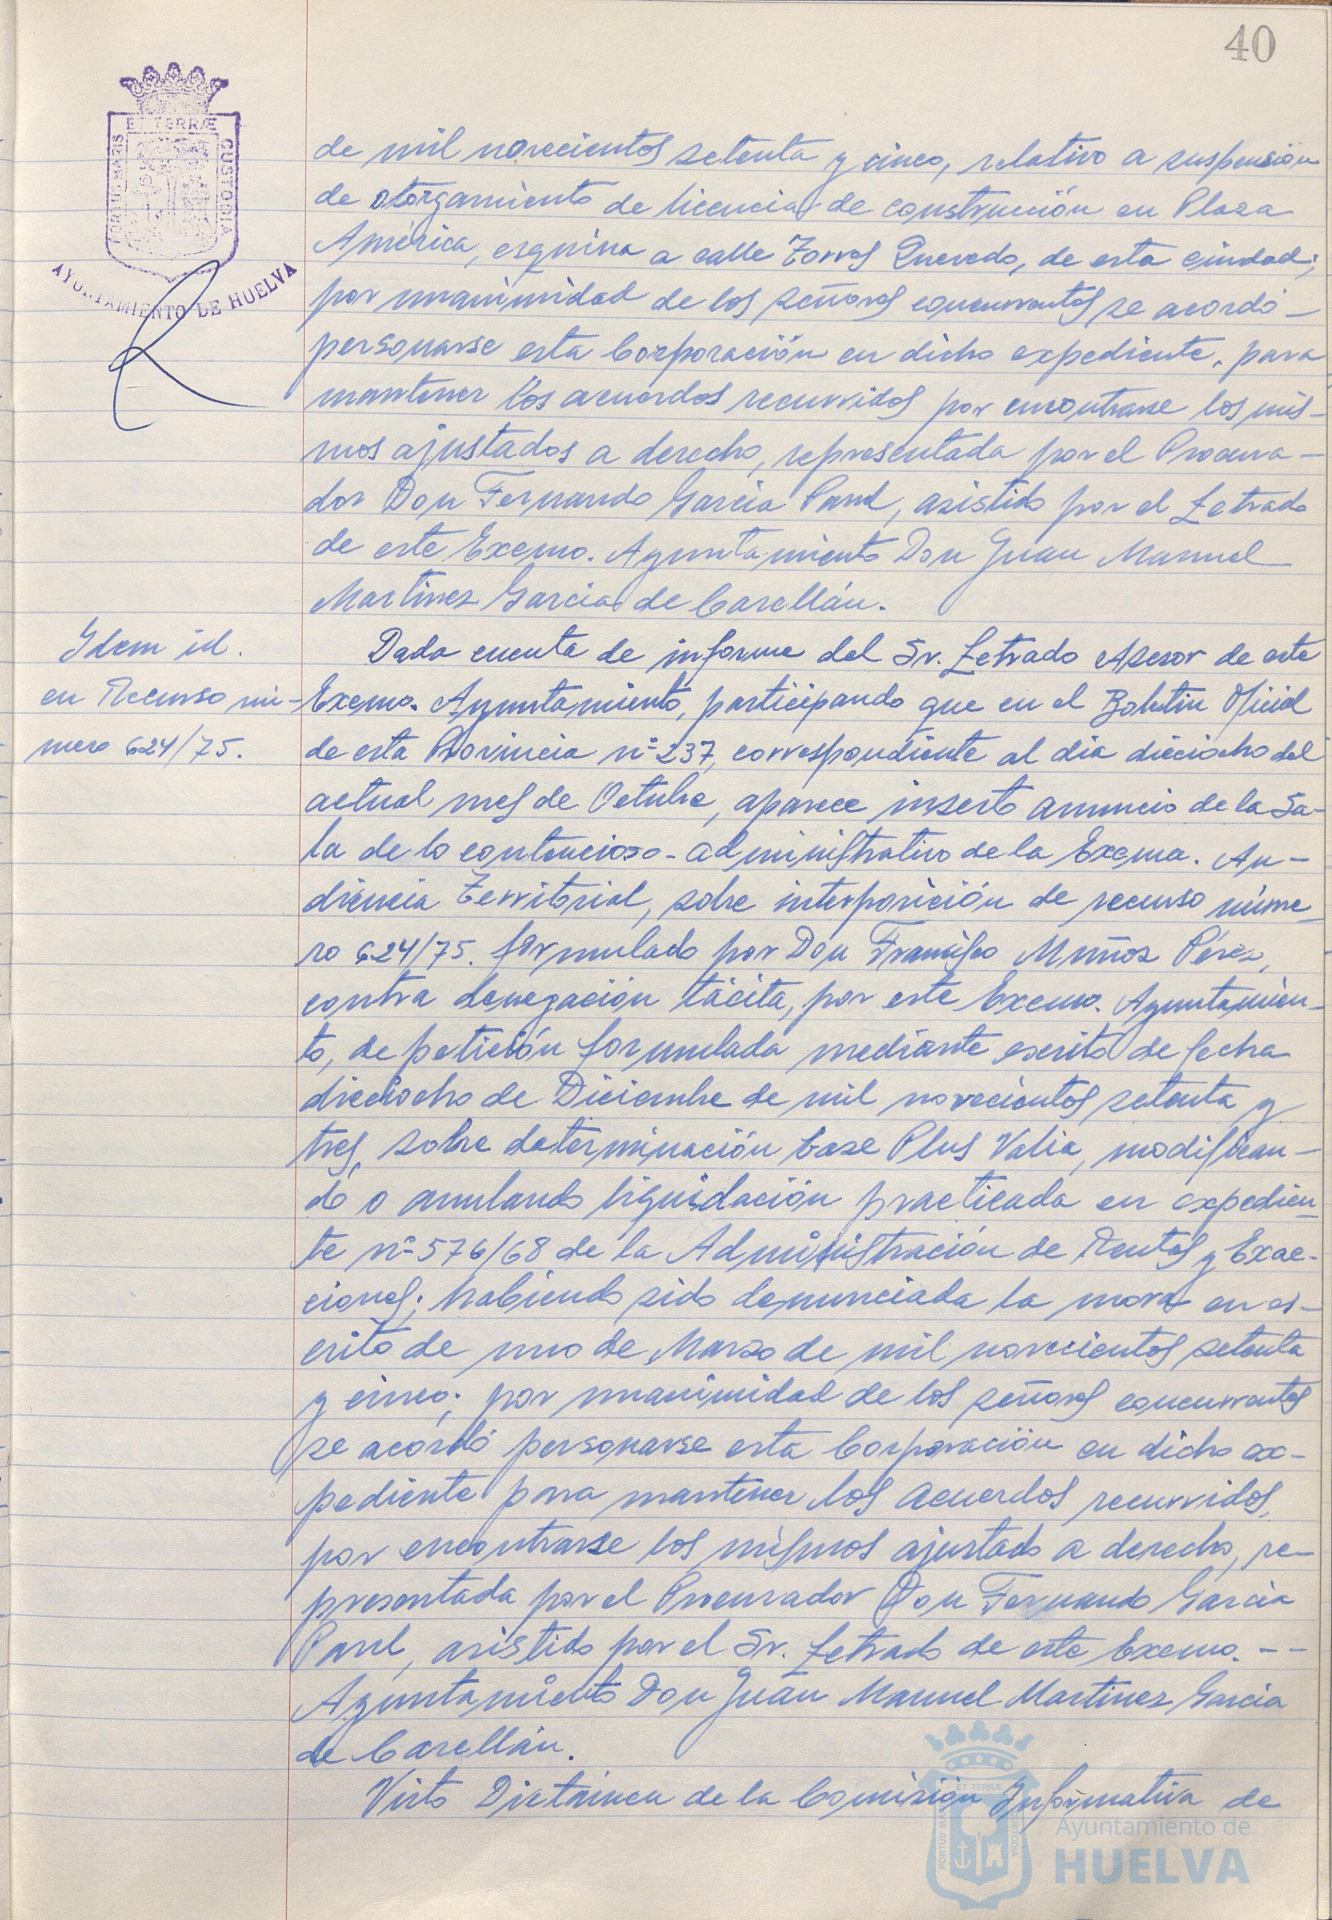 40
ET TERRÆ
PORTUS MARIS
CUSTODIA
AYUNTAMIENTO DE HUELVA
de mil novecientos setenta y cinco, relativo a suspensión
de otorgamiento de licencia de construcción en Plaza
América, esquina a calle Torres Quevedo, de esta ciudad;
por unanimidad de los señores concurrentes se acordó
personarse esta Corporación en dicho expediente, para
mantener los acuerdos recurridos por encontrarse los mis-
mos ajustados a derecho, representada por el Procura-
dor Don Fernando García Parul, asistido por el Letrado
de este Excmo. Ayuntamiento Don Juan Manuel
Martínez García de Carellán.
Idem id.
en Recurso nú-
mero 624/75.
Dada cuenta de informe del Sr. Letrado Asesor de este
Excmo. Ayuntamiento, participando que en el Boletín Oficial
de esta Provincia nº 237, correspondiente al día dieciocho del
actual mes de Octubre, aparece inserto anuncio de la Sa-
la de lo contencioso-administrativo de la Excma. Au-
diencia Territorial, sobre interposición de recurso núme-
ro 624/75. formulado por Don Francisco Muñoz Pérez,
contra denegación tácita, por este Excmo. Ayuntamien-
to, de petición formulada mediante escrito de fecha
dieciocho de Diciembre de mil novecientos setenta y
tres, sobre determinación base Plus Valia, modifican-
do o anulando liquidación practicada en expedien-
te nº 576/68 de la Administración de Rentas y Exac-
ciones; habiendo sido denunciada la mora en es-
crito de uno de Marzo de mil novecientos setenta
y cinco; por unanimidad de los señores concurrentes
se acordó personarse esta Corporación en dicho ex-
pediente para mantener los acuerdos recurridos,
por encontrarse los mismos ajustado a derecho, re-
presentada por el Procurador Don Fernando García
Parul, asistido por el Sr. Letrado de este Excmo. - -
Ayuntamiento Don Juan Manuel Martínez García
de Carellán.
Visto Dictamen de la Comisión Informativa de
ET TERRÆ
PORTUS MARIS
CUSTODIA
Ayuntamiento de
HUELVA